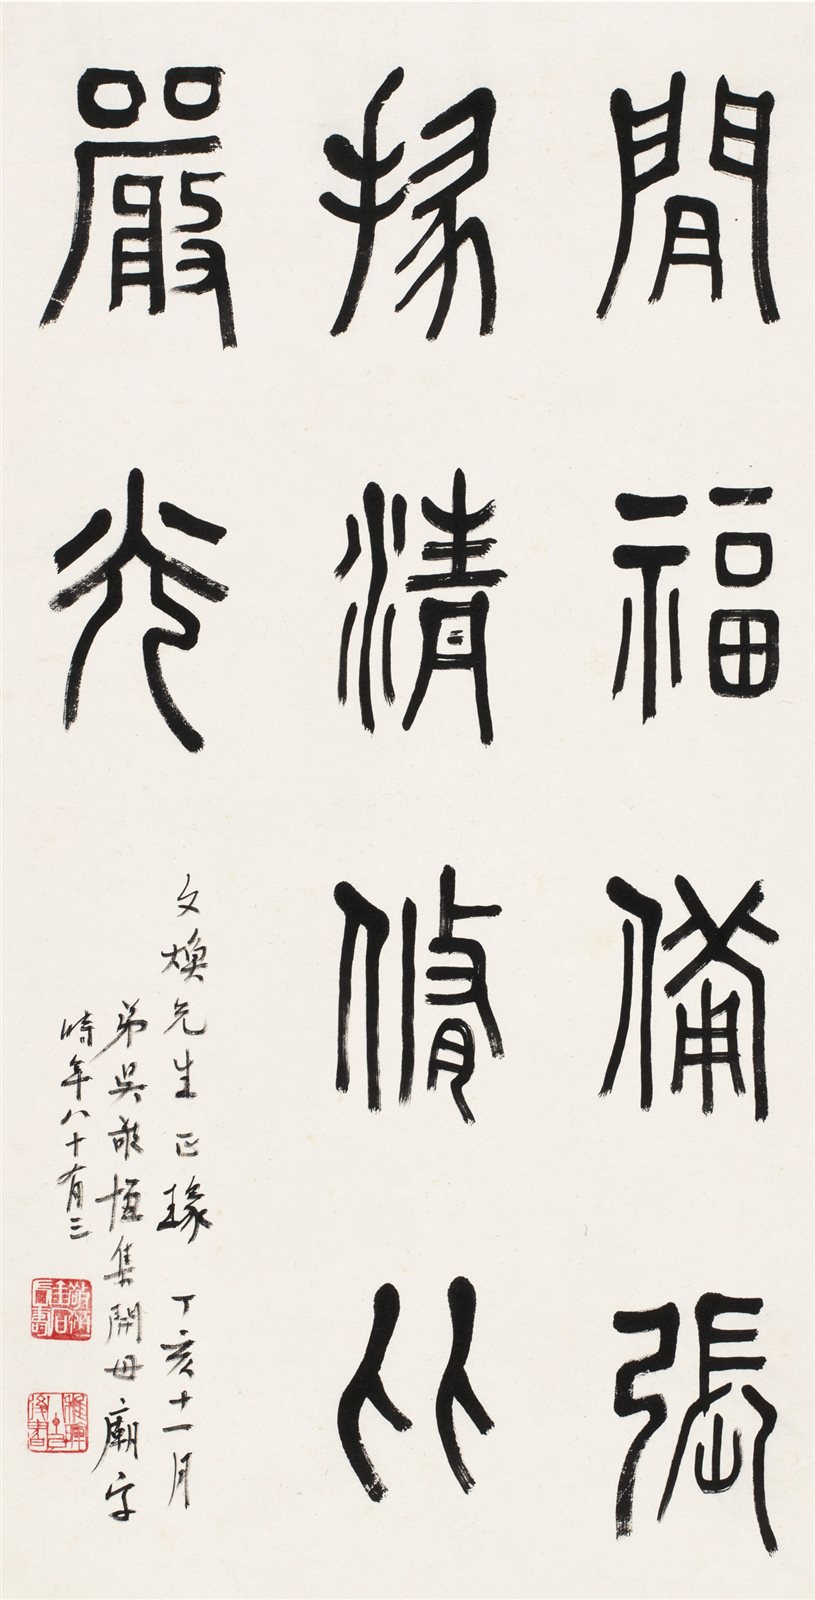 閒福備張
掾清脩比
嚴光
文煥先生正瑑 丁亥十一月
弟吳敬恆集開母廟字
時年八十有三